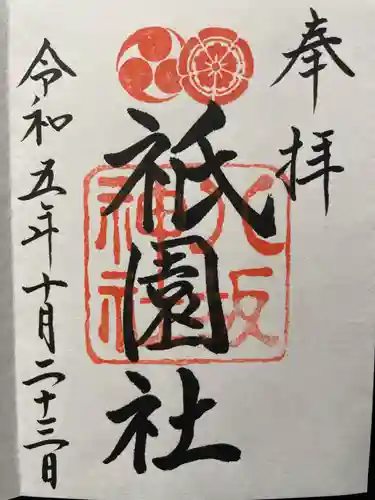 奉拝
祇園社
八坂神社
令和五年十月二十三日